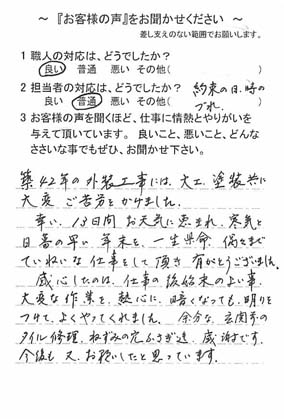 ～『お客様の声』をお聞かせください～
差し支えのない範囲でお願いします。
1 職人の対応は、どうでしたか?
良い 普通 悪い その他( )
2 担当者の対応は、どうでしたか? 約束の日、時の
良い 普通 悪い その他( づれ. )
3 お客様の声を聞くほど、仕事に情熱とやりがいを
与えて頂いています。 良いこと、悪いこと、どんな
ささいな事でもぜひ、お聞かせ下さい。
築42年の外装工事には、大工、塗装共に
大変ご苦労をかけました。
幸い、13日間お天気に恵まれ、寒気と
日暮の早い年末を、一生県命、
ていねいな仕事をして頂き有がとうございました。
感心したのは、仕事の後始末のよい事、
大変な作業を、熱心に、暗くなっても、明りを
つけて、よくやってくれました。 余分な、玄関等の
タイル修理、ねずみの穴ふさぎ迄、感謝です。
今後も又、お願いしたと思っています。